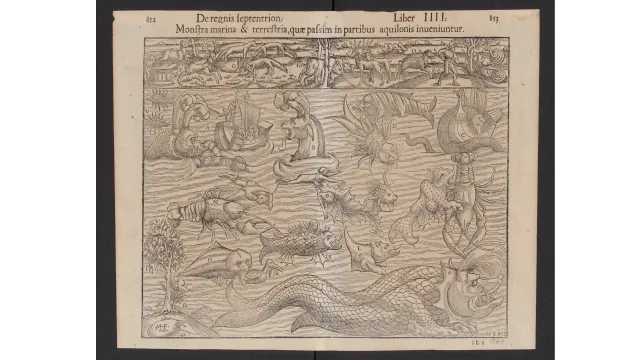 852 De regnis septentrion: Liber IIII. 853
Monstra marina & terrestria, quæ passim in partibus aquilonis inueniuntur.